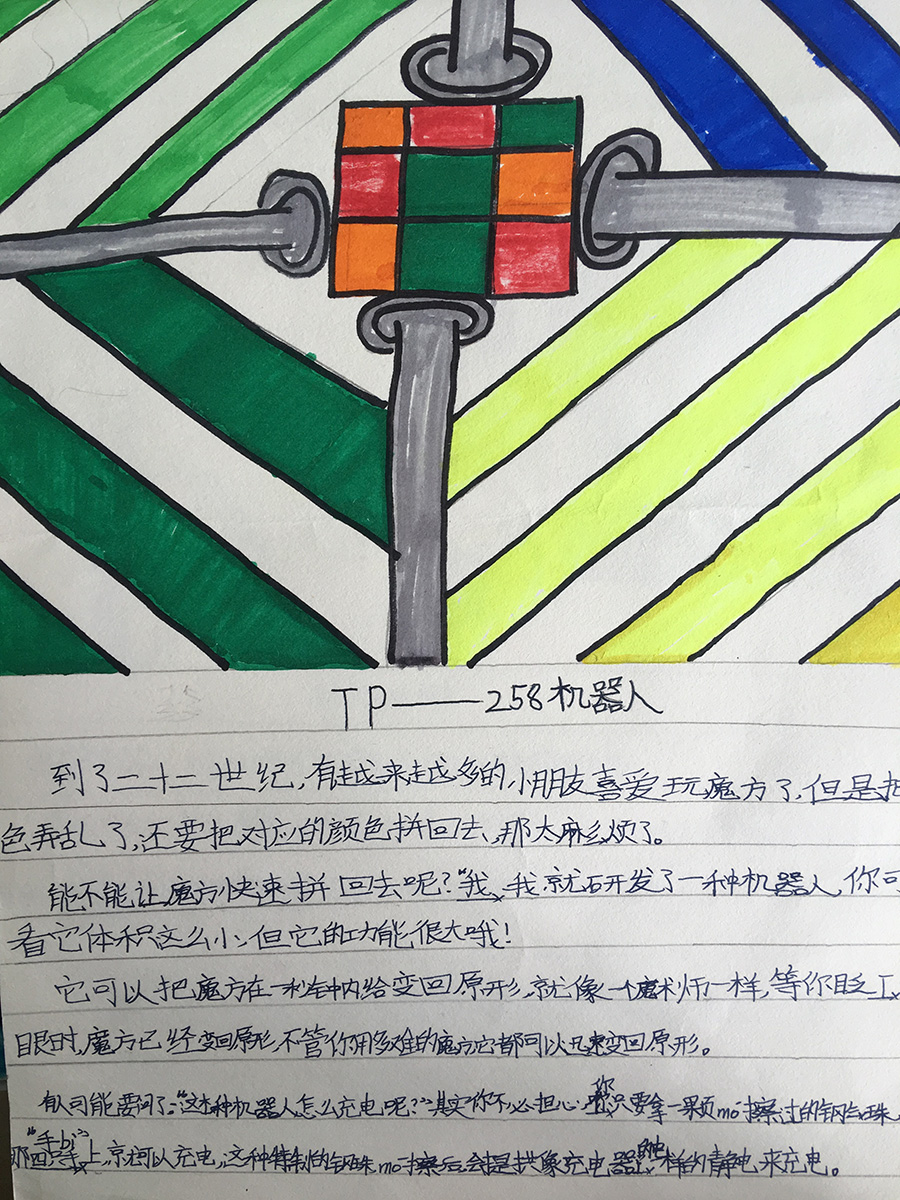 TP——258机器人
到了二十二世纪,有越来越多的小朋友喜爱玩魔方了,但是把
色弄乱了,还要把对应的颜色拼回去,那太麻烦了。
能不能让魔方快速拼回去呢?"我 我就研发了一种机器人,你可
看它体积这么小,但它的功能很大哦!
它可以把魔方在一秒钟内给变回原形,就像一个魔术师一样,等你眨
眼时,魔方已经变回原形,不管你用多难的魔方它都可以迅速变回原形。
有人可能要问了:"这种机器人怎么充电呢?"其实你不必担心,你只要拿一颗mo擦过的钢珠,
那四只"手bi"上,就可以充电,这种特制的钢珠mo擦后会是拱像充电器的电一样的静电来充电。